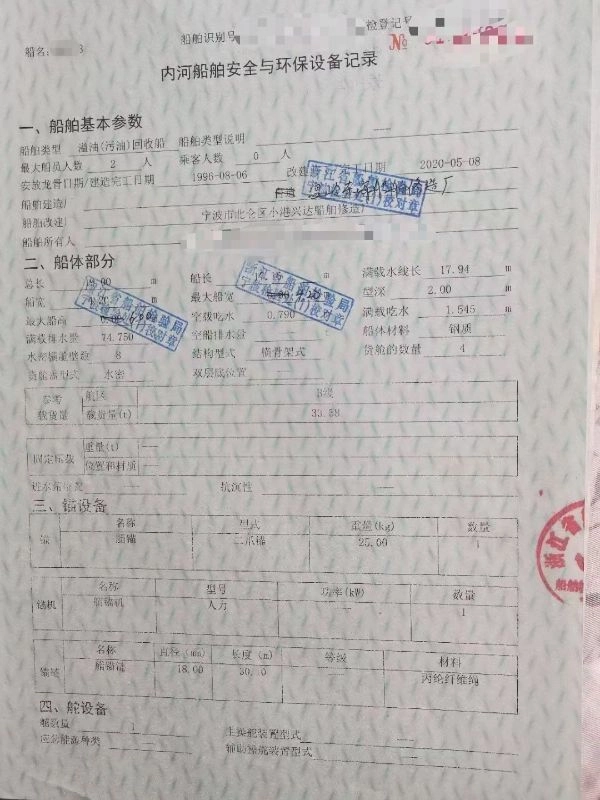 船舶识别号 检登记号
船名: 3 №
内河船舶安全与环保设备记录
一、船舶基本参数
船舶类型 溢油(污油)回收船 船舶类型说明 —
最大船员人数 2 人 乘客人数 0 人
安放龙骨日期/建造完工日期 1996-08-06 改建 工日期 2020-05-08
船舶建造厂
船舶改建厂 宁波市北仑区小港兴达船舶修造厂
船舶所有人
浙江省船舶检验局
校对章
二、船体部分
总长 m 船长 m 满载水线长 17.94 m
船宽 m 最大船宽 m 型深 2.00 m
最大船高 m 空载吃水 0.790 m 满载吃水 1.545 m
满载排水量 74.750 t 空船排水量 船体材料 钢质
水密横舱壁数 8 结构型式 横骨架式 货舱的数量 4
货舱盖型式 水密 双层底位置
浙江省船舶检验局
校对章
参考 航区 B级
载货量 载货量(t) 33.38
固定压载 重量(t) —
位置和材质 —
抗沉性
三、锚设备
名称 型式 重量(kg) 数量
锚 船锚 二爪锚 25.00 1
名称 型号 功率(kW) 数量
锚机 船锚机 人力 — 1
名称 直径(mm) 长度(m) 等级 材料
锚链 船锚链 18.00 30.0 丙纶纤维绳
四、舵设备
舵数量 1 主操舵装置型式 —
应急能源种类 — 辅助操舵装置型式 —
浙江省
船舶